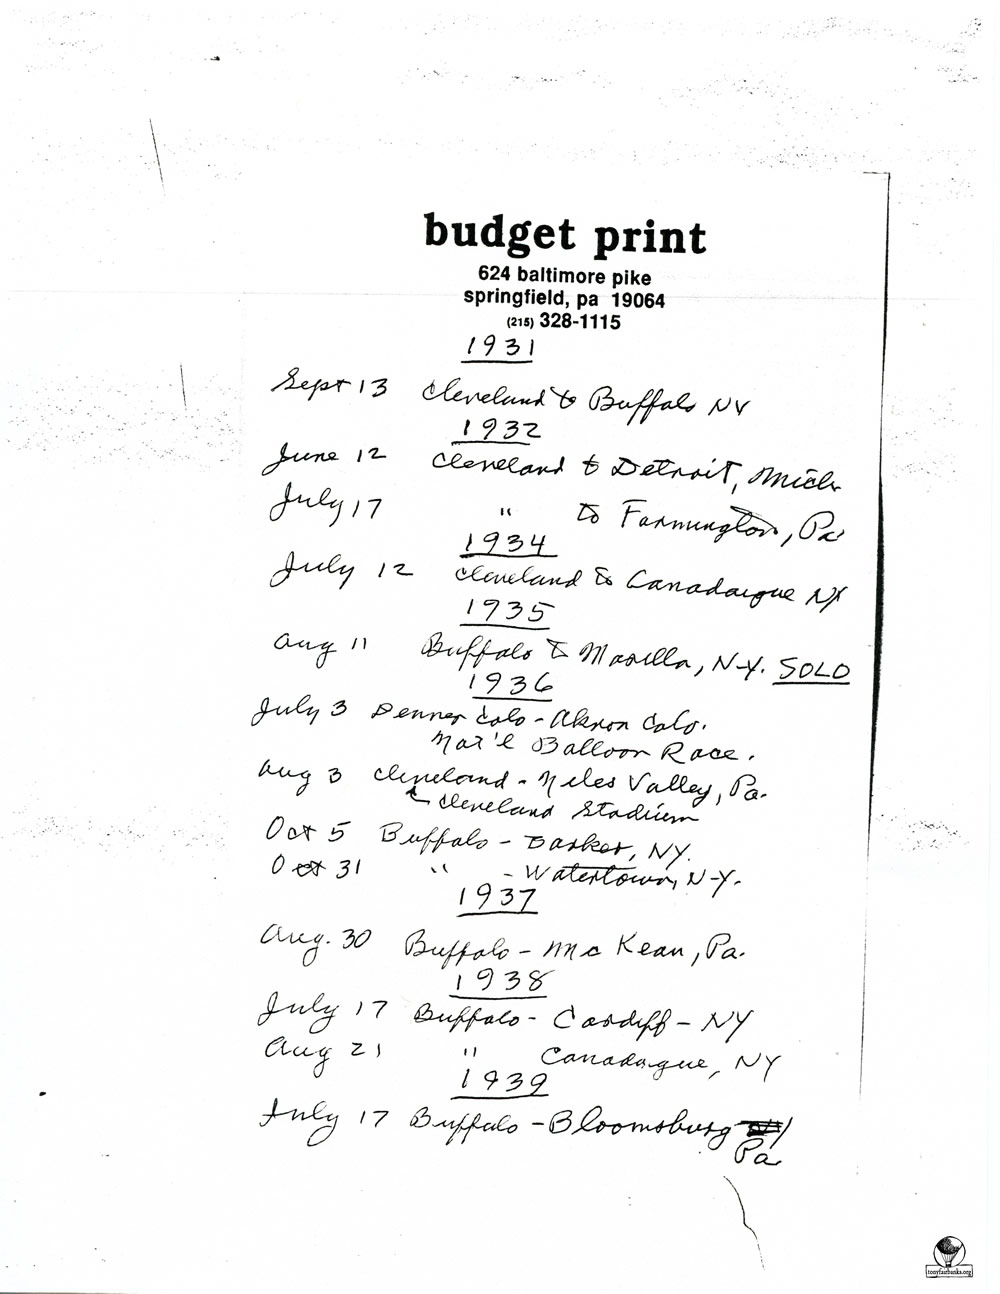 budget print
624 baltimore pike
springfield, pa 19064
(215) 328-1115
1931
Sept 13 Cleveland to Buffalo NY
1932
June 12 Cleveland to Detroit, Mich
July 17 " to Farmington, Pa
1934
July 12 Cleveland to Canadaigue NY
1935
Aug 11 Buffalo to Marilla, N-Y. SOLO
1936
July 3 Denver Colo - Akron Colo.
Nat'l Balloon Race.
Aug 3 Cleveland - Niles Valley, Pa.
Cleveland Stadium
Oct 5 Buffalo - Barker, NY.
Oct 31 " - Watertown, N-Y.
1937
Aug. 30 Buffalo - McKean, Pa.
1938
July 17 Buffalo - Cardiff - NY
Aug 21 " Canadaigue, NY
1939
July 17 Buffalo - Bloomsburg NY
Pa
tonyfairbanks.org